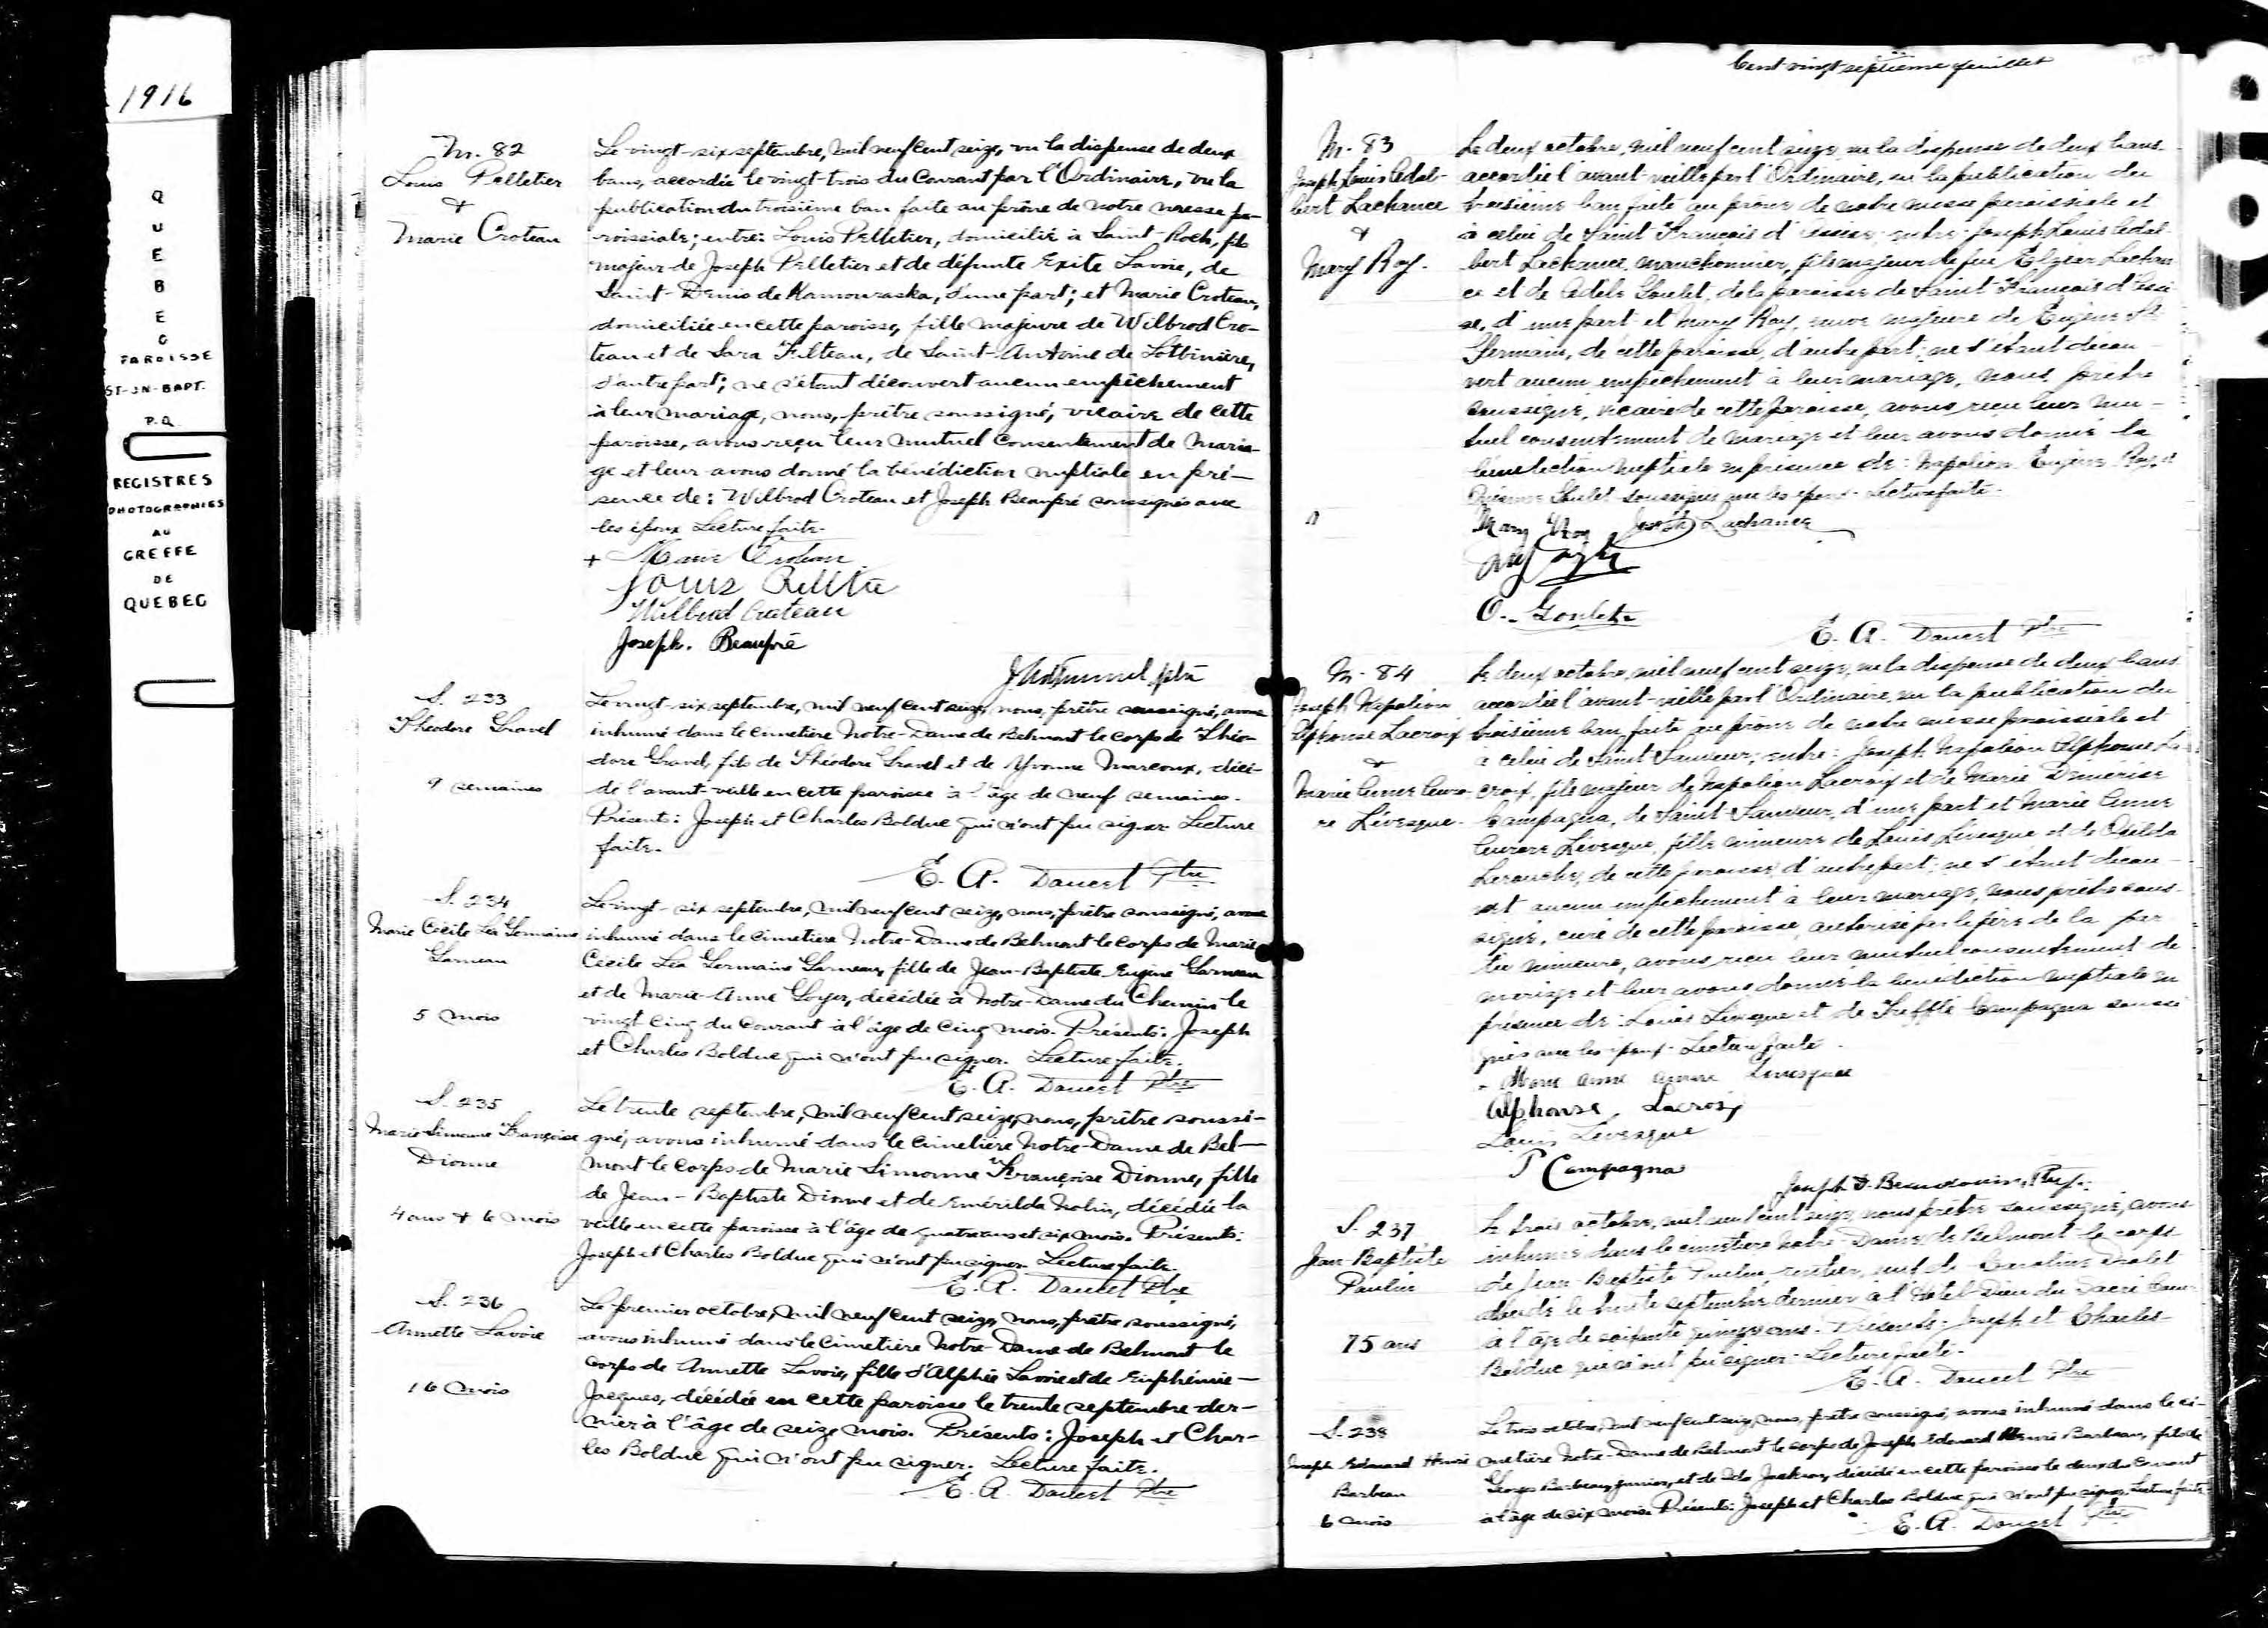 1916
QUEBEC
PAROISSE
ST-JN-BAPT.
P.Q.
REGISTRES
PHOTOGRAPHIES
AU
GREFFE
DE
QUEBEC
M. 82
Louis Pelletier
&
Marie Croteau
Le vingt-six septembre, mil neuf cent seize, vu la dispense de deux
bans, accordée le vingt-trois du courant par l'Ordinaire, vu la
publication du troisième ban faite au prône de notre messe pa-
roissiale; entre: Louis Pelletier, domicilié à Saint-Roch, fils
majeur de Joseph Pelletier et de défunte Exite Lavoie, de
Saint-Denis de Kamouraska, d'une part; et Marie Croteau,
domiciliée en cette paroisse, fille majeure de Wilbrod Cro-
teau et de Sara Filteau, de Saint-Antoine de Lotbinière,
d'autre part; ne s'étant découvert aucun empêchement
à leur mariage, nous, prêtre soussigné, vicaire de cette
paroisse, avons reçu leur mutuel consentement de maria-
ge et leur avons donné la bénédiction nuptiale en pré-
sence de: Wilbrod Croteau et Joseph Beaupré soussignés avec
les époux Lecture faite.
+ Marie Croteau
Louis Pelletier
Wilbrod Croteau
Joseph. Beaupré
ptre
S. 233
Théodore Gravel
9 semaines
Le vingt-six septembre, mil neuf cent seize, nous, prêtre soussigné, avons
inhumé dans le cimetière Notre-Dame de Belmont le corps de Théo-
dore Gravel, fils de Théodore Gravel et de Yvonne Marcoux, décé-
dé l'avant-veille en cette paroisse à l'âge de neuf semaines.
Présents: Joseph et Charles Bolduc qui n'ont pu signer Lecture
faite.
E. A. Doucet Ptre
S. 234
Marie Cécile Léa Germaine
Garneau
5 mois
Le vingt-six septembre, mil neuf cent seize, nous, prêtre soussigné, avons
inhumé dans le cimetière Notre-Dame de Belmont le corps de Marie
Cécile Léa Germaine Garneau, fille de Jean-Baptiste Eugène Garneau
et de Marie-Anne Goyer, décédée à Notre-Dame du Chemin le
vingt cinq du courant à l'âge de cinq mois. Présents: Joseph
et Charles Bolduc qui n'ont pu signer. Lecture faite.
E. A. Doucet Ptre
S. 235
Marie Simonne Françoise
Dionne
4 ans & 6 mois
Le trente septembre, mil neuf cent seize, nous, prêtre soussi-
gné, avons inhumé dans le cimetière Notre-Dame de Bel-
mont le corps de Marie Simonne Françoise Dionne, fille
de Jean-Baptiste Dionne et de Emérilda Nolin, décédée la
veille en cette paroisse à l'âge de quatre ans et six mois. Présents:
Joseph et Charles Bolduc qui n'ont pu signer. Lecture faite.
E. A. Doucet Ptre
S. 236
Annette Lavoie
16 mois
Le premier octobre, mil neuf cent seize, nous, prêtre soussigné,
avons inhumé dans le cimetière Notre-Dame de Belmont le
corps de Annette Lavoie, fille d'Alphée Lavoie et de Euphémie
Jacques, décédée en cette paroisse le trente septembre der-
nier à l'âge de seize mois. Présents: Joseph et Char-
les Bolduc qui n'ont pu signer. Lecture faite.
E. A. Doucet Ptre
Cent vingt septième feuillet
M. 83
Joseph Louis Adal-
bert Lachance
&
Mary Roy.
Le deux octobre, mil neuf cent seize, vu la dispense de deux bans
accordée l'avant-veille par l'Ordinaire, vu la publication du
troisième ban faite au prône de notre messe paroissiale et
à celui de Saint François d'Assise; entre: Joseph Louis Adal-
bert Lachance, manchonnier, fils majeur de feu Elzéar Lachan-
ce et de Adèle Goulet, de la paroisse de Saint François d'Assi-
se, d'une part et Mary Roy, veuve majeure de Eugène St
Germain, de cette paroisse, d'autre part; ne s'étant décou-
vert aucun empêchement à leur mariage, nous, prêtre
soussigné, vicaire de cette paroisse, avons reçu leur mu-
tuel consentement de mariage et leur avons donné la
bénédiction nuptiale en présence de: Napoléon Eugène Roy, et
Onésime Goulet soussignés avec les époux. Lecture faite.
Mary Roy Joseph Lachance
O. Goulet
E. A. Doucet Ptre
M. 84
Joseph Napoléon
Alphonse Lacroix
&
Marie Anne Auro-
re Lévesque.
Le deux octobre, mil neuf cent seize, vu la dispense de deux bans
accordée l'avant-veille par l'Ordinaire, vu la publication du
troisième ban faite au prône de notre messe paroissiale et
à celui de Saint Sauveur; entre: Joseph Napoléon Alphonse La-
croix, fils majeur de Napoléon Lacroix et de Marie Démérise
Campagna, de Saint-Sauveur, d'une part et Marie Anne
Aurore Lévesque, fille mineure de Louis Lévesque et de Exilda
Larouche, de cette paroisse, d'autre part; ne s'étant décou-
vert aucun empêchement à leur mariage, nous prêtre sous-
signé, curé de cette paroisse, autorisé par le père de la par-
tie mineure, avons reçu leur mutuel consentement de
mariage et leur avons donné la bénédiction nuptiale en
présence de: Louis Lévesque et de Trefflé Campagna soussi-
gnés avec les époux. Lecture faite.
Marie Anne Aurore Levesque
Alphonse Lacroix
Louis Levesque
T Campagna
Joseph D. Beaudouin, Ptre.
S. 237
Jean-Baptiste
Paulin
75 ans
Le trois octobre, mil neuf cent seize, nous prêtre soussigné, avons
inhumé dans le cimetière Notre Dame de Belmont le corps
de Jean Baptiste Paulin rentier, veuf de Caroline Drolet
décédé le trente septembre dernier à l'Hôtel-Dieu du Sacré Coeur
à l'âge de soixante quinze ans. Présents: Joseph et Charles
Bolduc qui n'ont pu signer. Lecture faite.
E. A. Doucet Ptre
S. 238
Joseph Edouard Henri
Barbeau
6 mois
Le trois octobre, mil neuf cent seize, nous, prêtre soussigné, avons inhumé dans le ci-
metière Notre-Dame de Belmont le corps de Joseph Edouard Henri Barbeau, fils de
Georges Barbeau, junior, et de Jackson, décédé en cette paroisse le deux du courant
à l'âge de six mois. Présents: Joseph et Charles Bolduc qui n'ont pu signer. Lecture faite.
E. A. Doucet Ptre